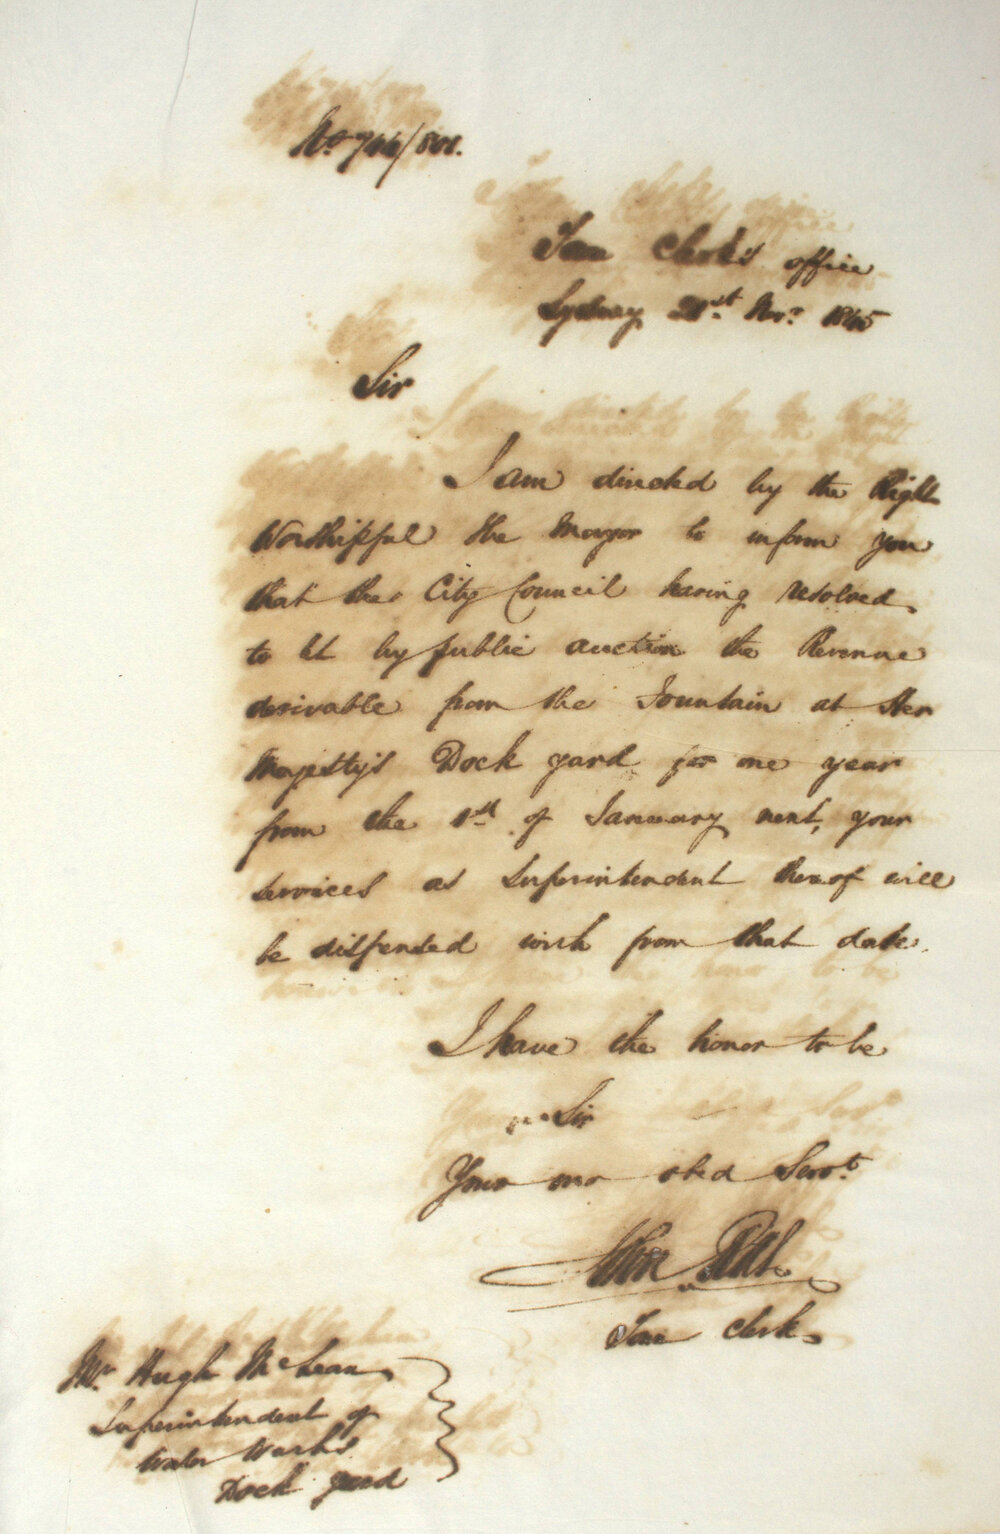 Town Clerk's office
Sydney 21st Novr. 1845
Sir
I am directed by the Right
Worshipful the Mayor to inform you
that the City Council having resolved
to let by public auction the Revenue
derivable from the Fountain at Her
Majesty's Dock yard for one year
from the 1st of January next, your
services as Superintendent thereof will
be dispensed with from that date.
I have the honor to be
Sir
Your mo obed Servt.
John
Town Clerk
Mr. Hugh McLean
Superintendent of
Water Works
Dock yard